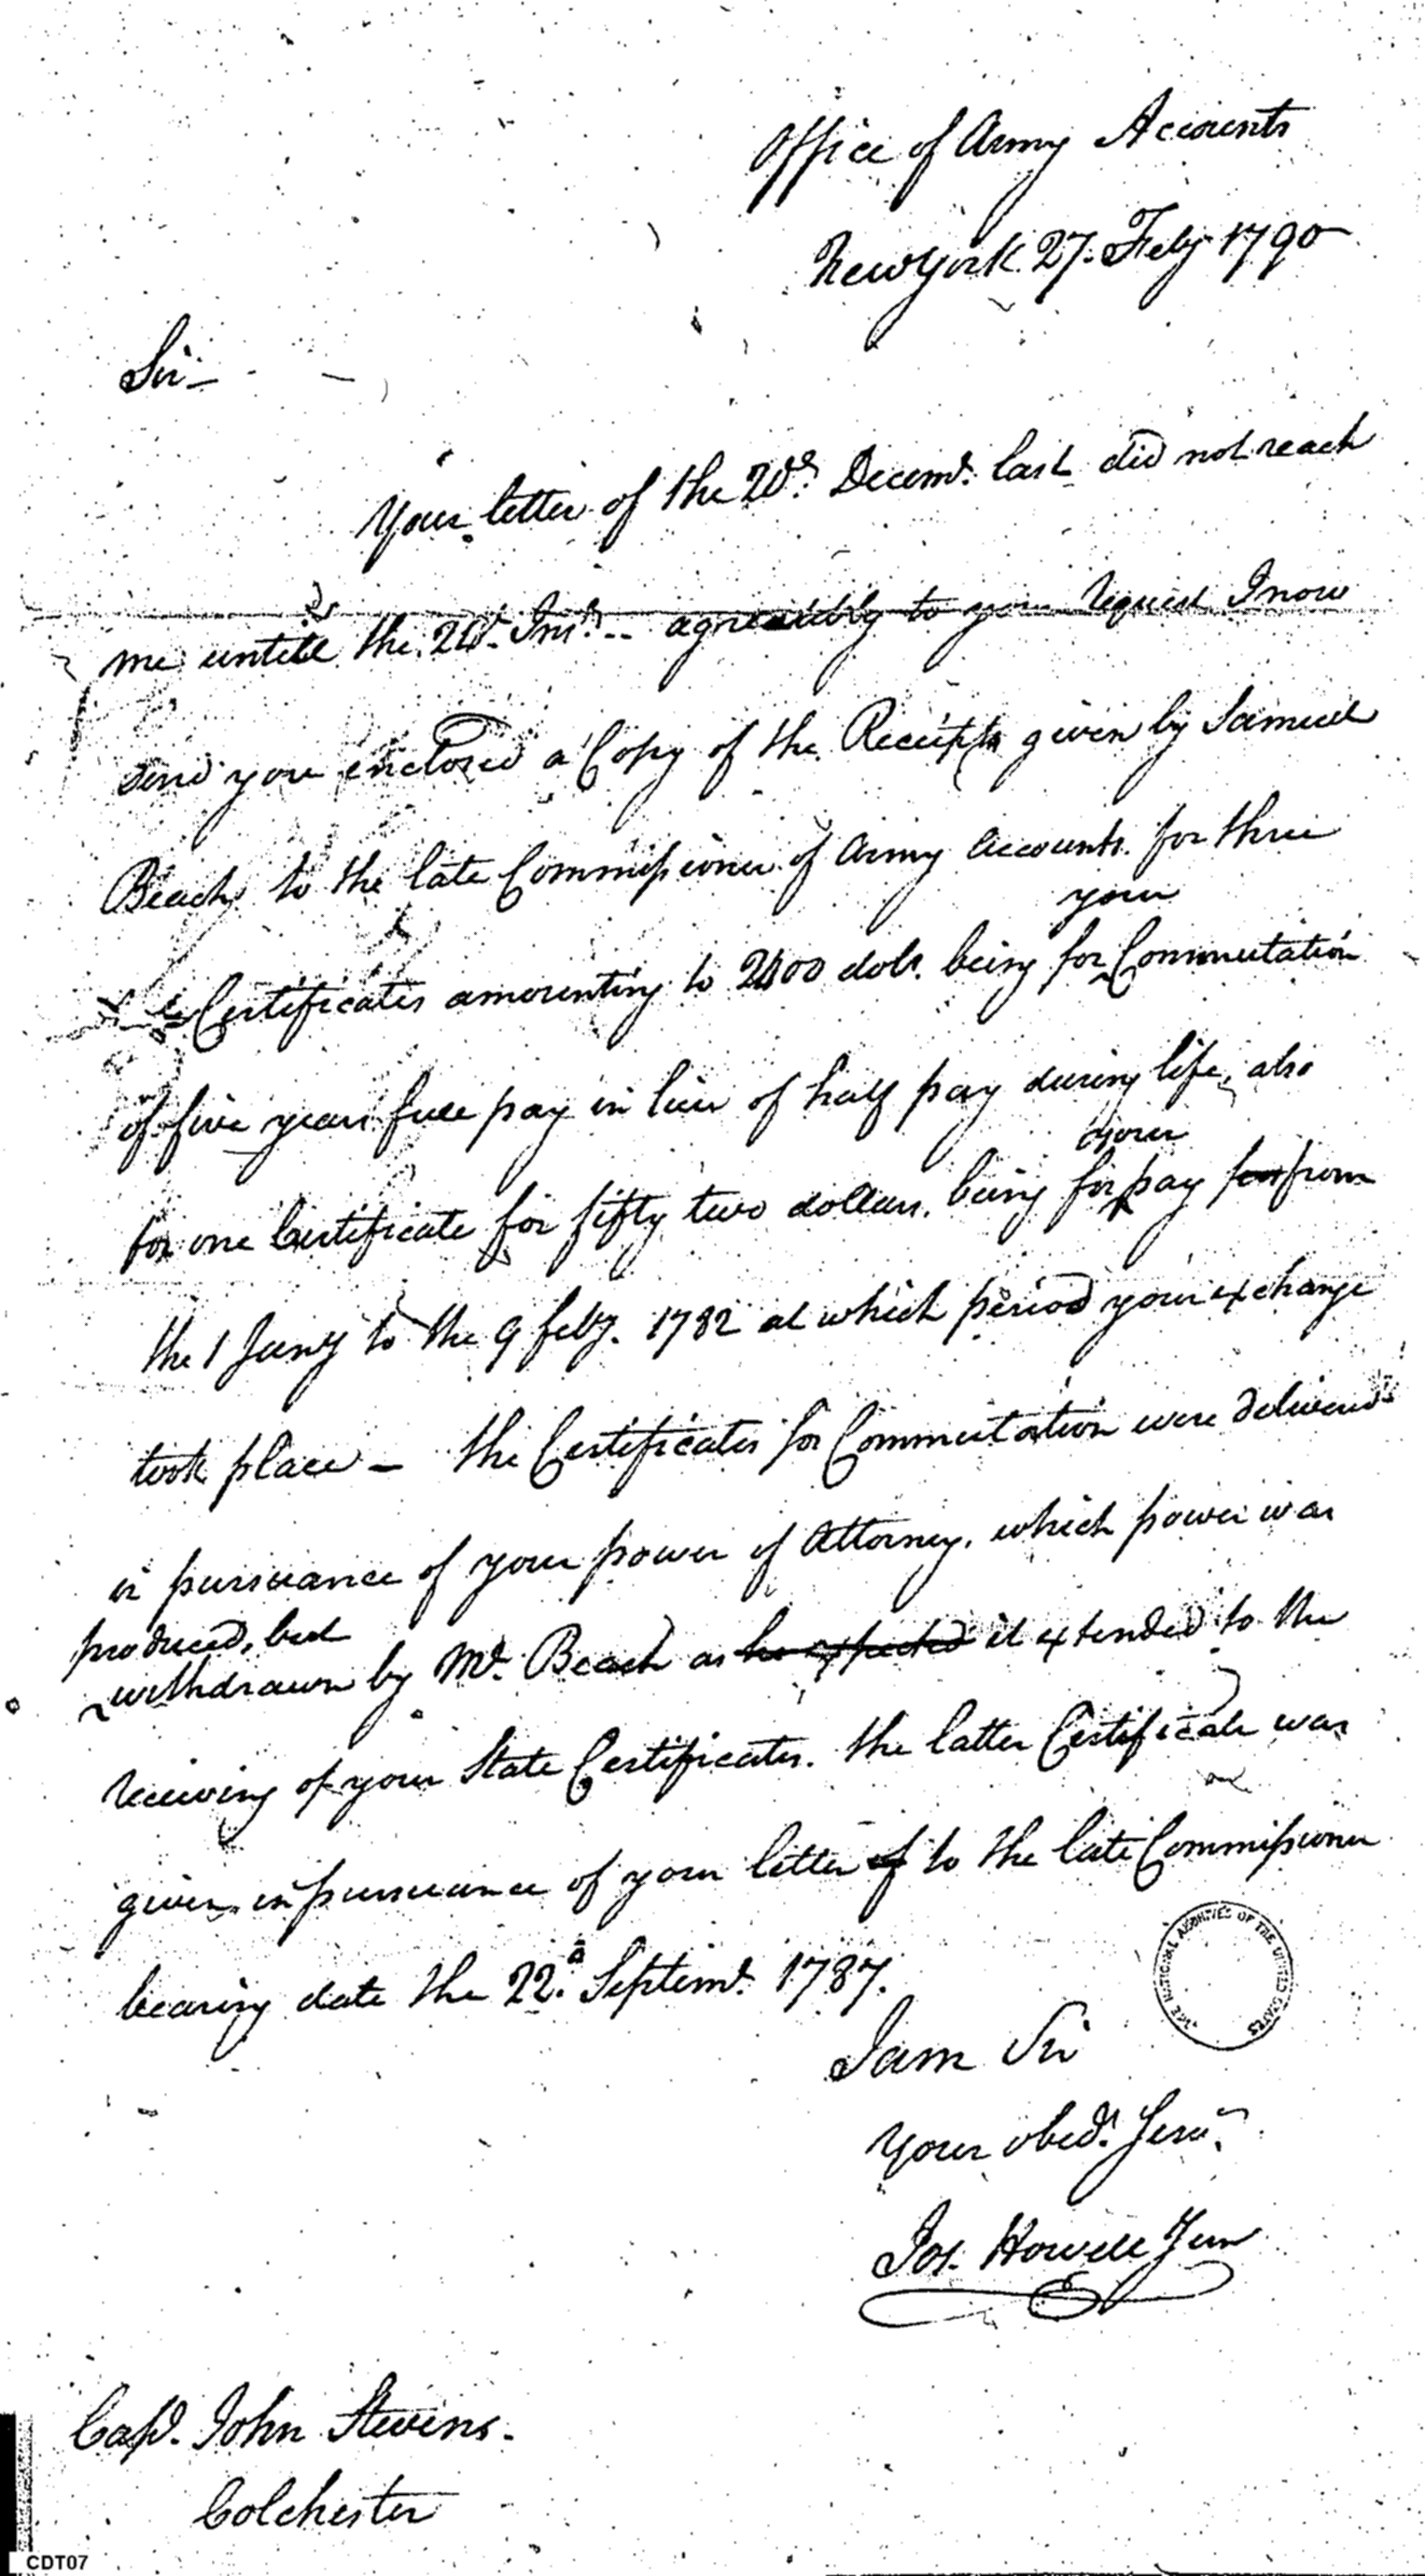 Office of Army Accounts
New York 27. Feby 1790
Sir
Your letter of the 20th Decemr. last did not reach
me untill the 24th Inst. -- agreeably to your request I now
send you enclosed a Copy of the Receipts given by Samuel
Beach to the late Commissioner of Army Accounts for three
your
Certificates amounting to 2400 dolr. being for Commutation
of five years full pay in lieu of half pay during life, also
your
for one Certificate for fifty two dollars. being for pay for from
the 1 Jany to the 9 feby. 1782 at which period your exchange
took place - the Certificates for Commutation were delivered
in pursuance of your power of Attorney. which power was
produced, but
withdrawn by Mr. Beach as he expected it extended to the
receiving of your State Certificates. the latter Certificate was
given in pursuance of your letter of to the late Commissioner
bearing date the 22d. Septemr. 1787.
I am Sir
Your obedt. Servt.
Jos. Howell Jun
Capt. John Stevens.
Colchester
THE NATIONAL ARCHIVES OF THE UNITED STATES
CDT07